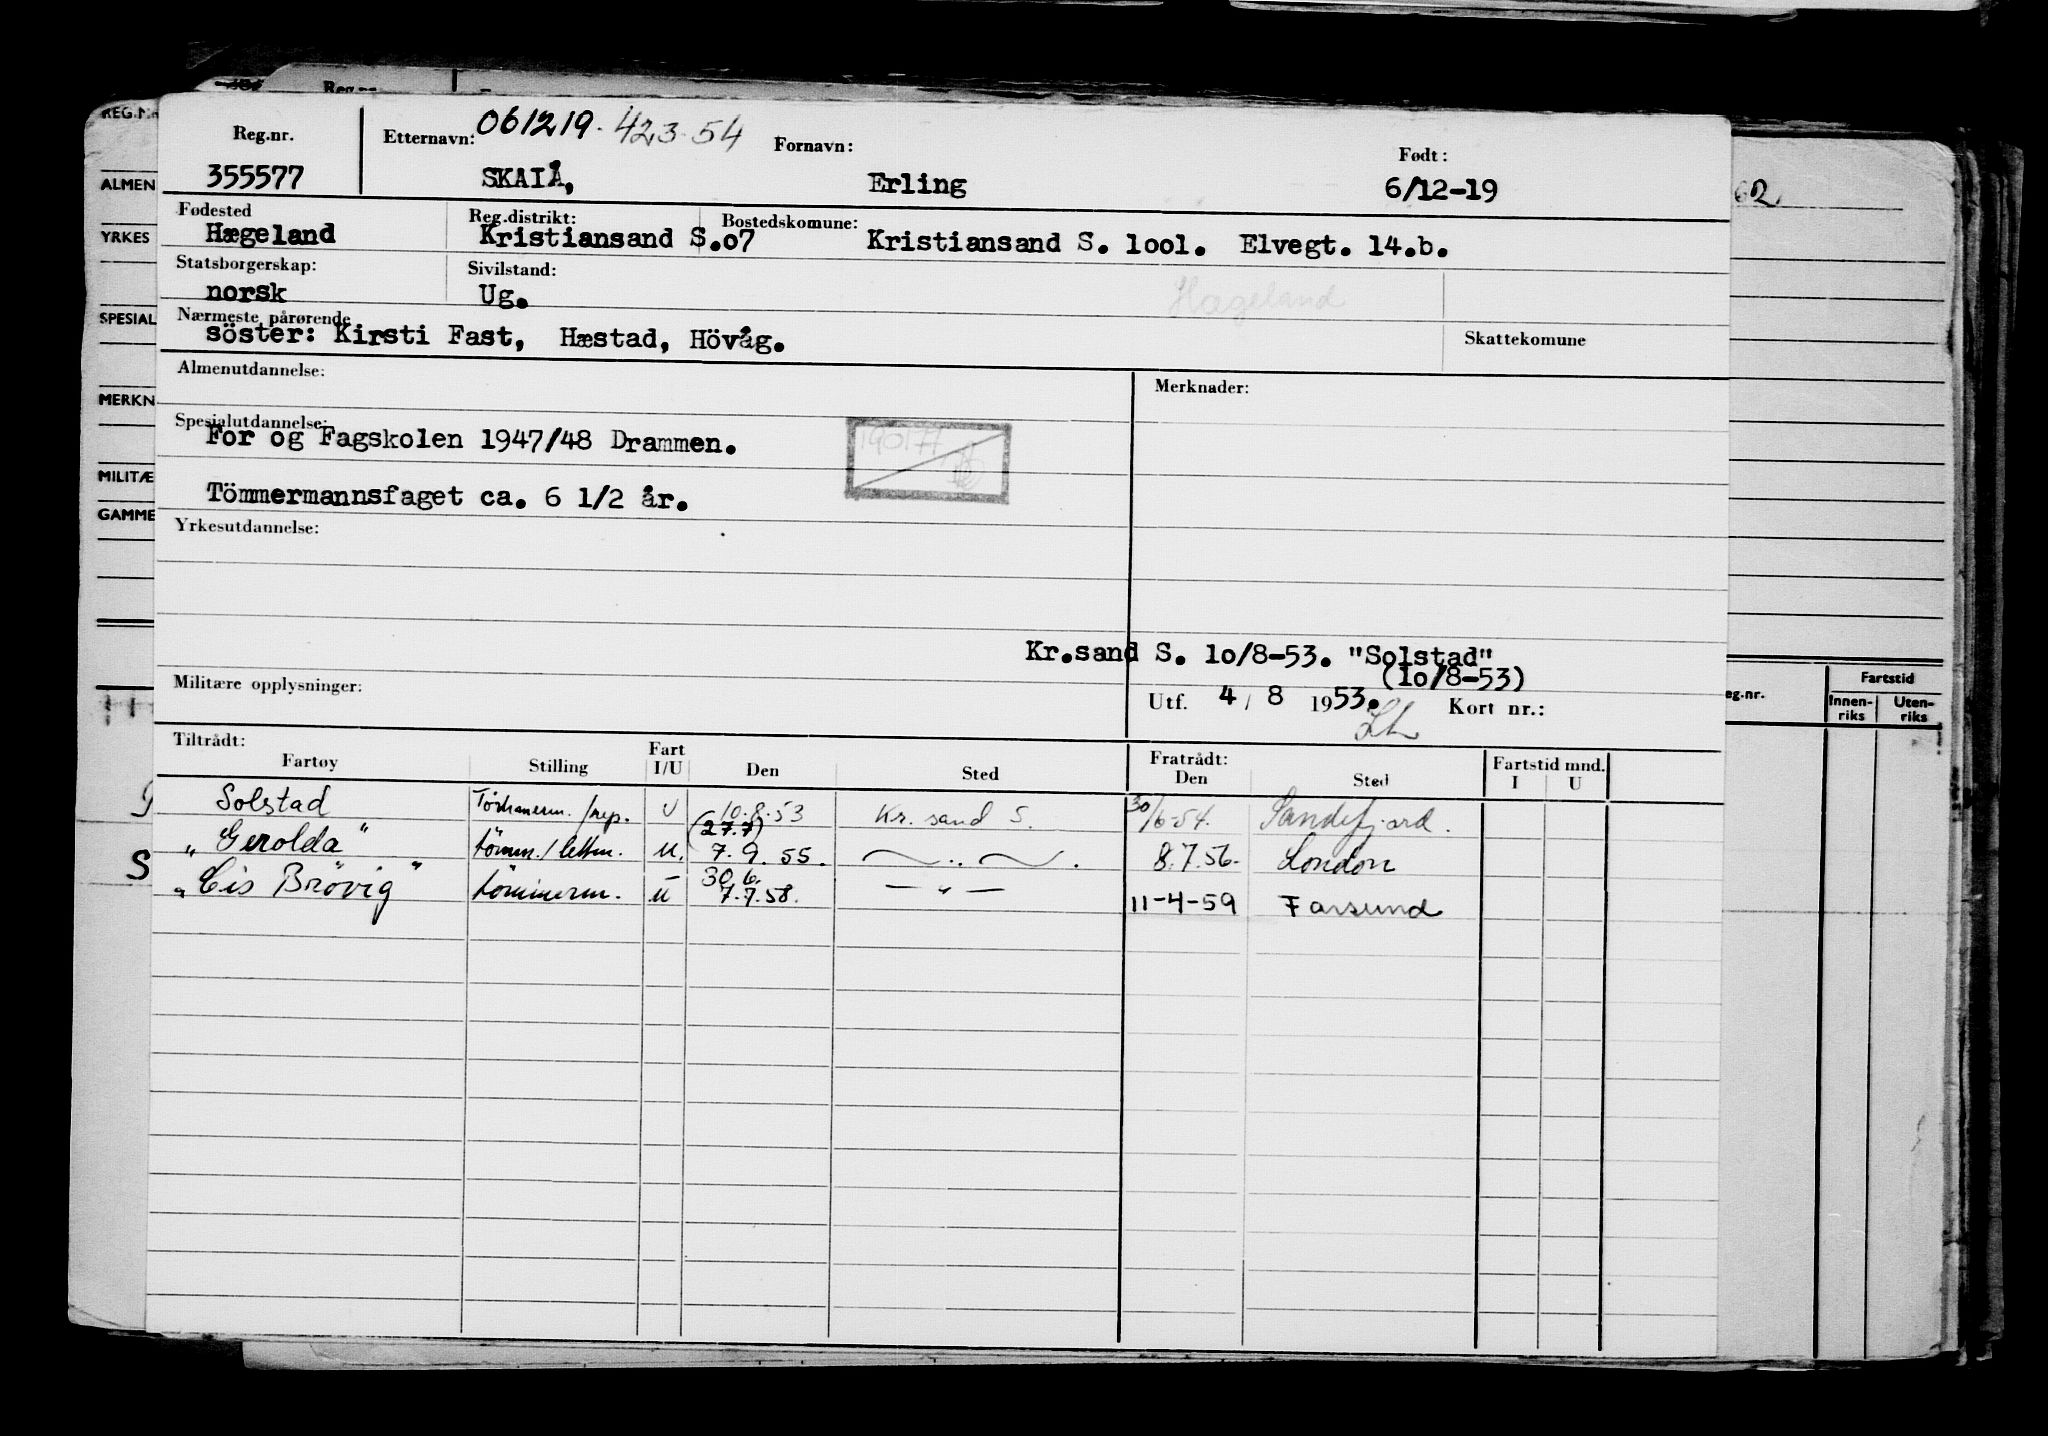 Reg.nr. Etternavn: 061219. 423 54 Fornavn: Født:
355577 SKAIÅ, Erling 6/12-19
Fødested Reg.distrikt: Bostedskomune:
Hægeland Kristiansand S.o7 Kristiansand S. lool. Elvegt. 14.b.
Statsborgerskap: Sivilstand:
norsk Ug. Hægeland
Nærmeste pårørende Skattekomune
söster: Kirsti Fast, Hæstad, Hövåg.
Almenutdannelse: Merknader:
Spesialutdannelse:
For og Fagskolen 1947/48 Drammen.
190177
Tömmermannsfaget ca. 6 1/2 år.
Yrkesutdannelse:
Kr.sand S. lo/8-53. "Solstad"
(lo/8-53)
Militære opplysninger: Utf. 4 / 8 1953. Kort nr.:
Tiltrådt: Fratrådt: Fartstid mnd.
Fartøy Stilling Fart I/U Den Sted Den Sted I U
Solstad /rep. U 10.8.53 Kr. sand S. 30/6-54. Sandefjord.
(27.7)
"Gerolda" tömm./lettm. U. 7.9.55. — " — . 8.7.56. London
30.6.
"Cis Brövig" tömmerm. U 7.7.58. — " — 11-4-59 Farsund
REG.NR
ALMEN
YRKES
SPESIAL
MERKN
MILITÆ
GAMME
S
Reg.nr.
62
eg.nr. Fartstid
Innen-riks Uten-riks